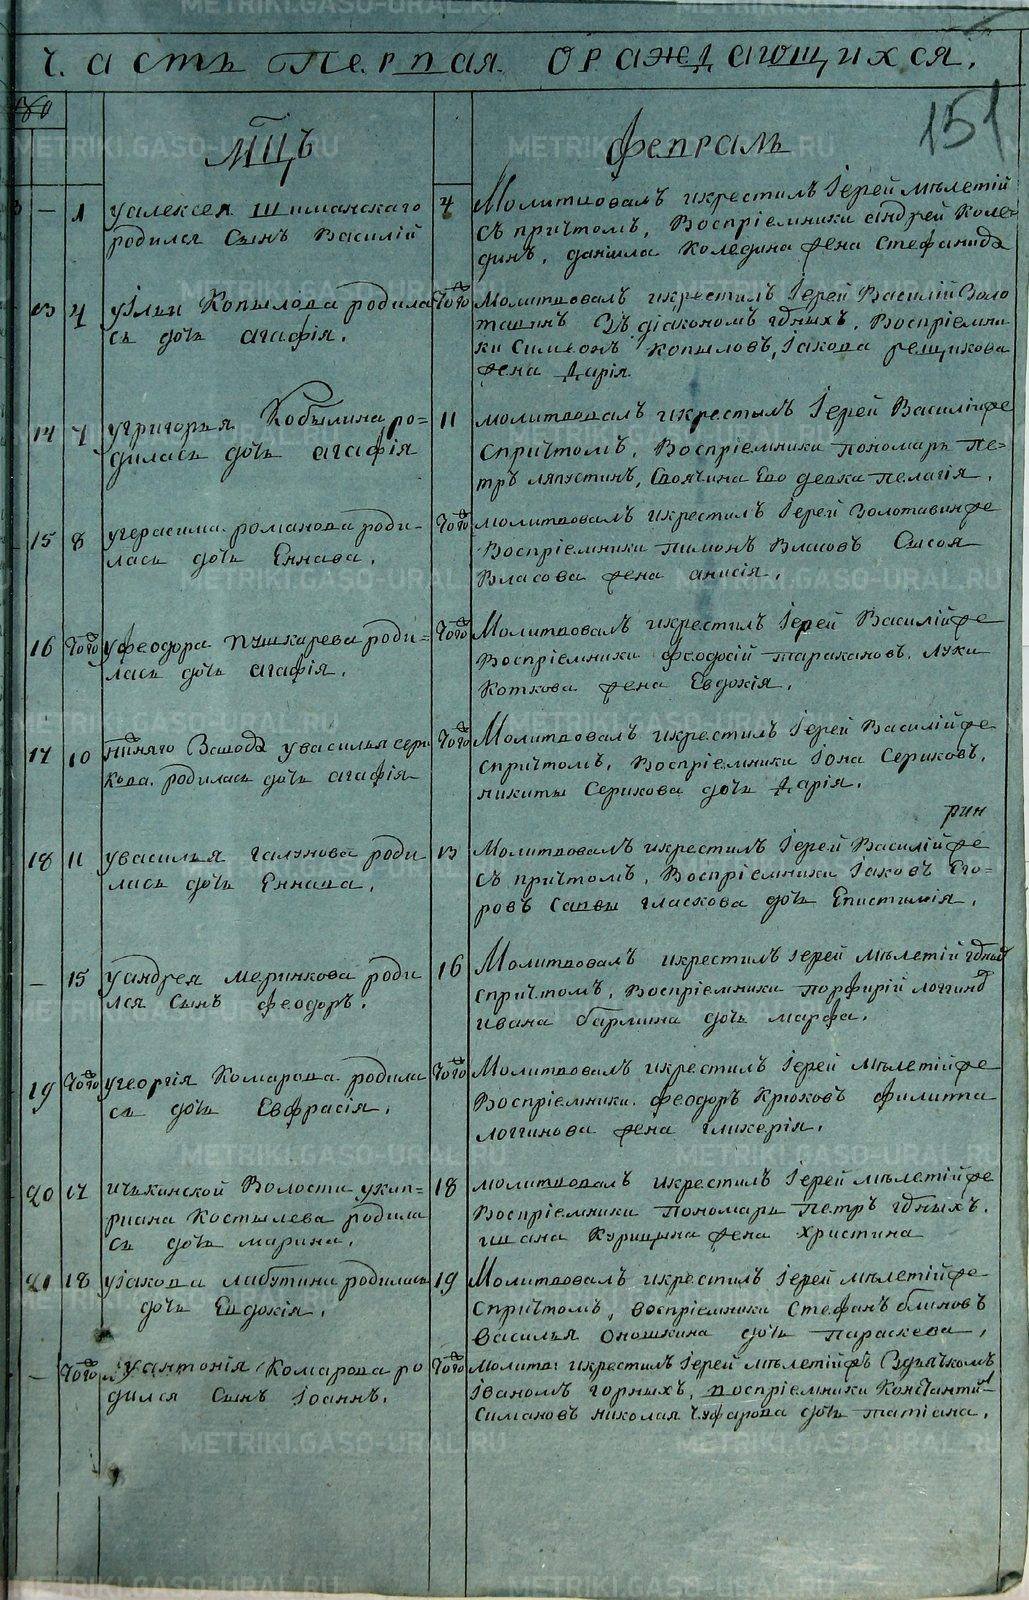 Часть Первая о раждающихся.
151
мцъ Февраль
13 — 1 у Алексея Шиманскаго
родился сынъ Василій
4 Молитвовалъ и крестилъ Іерей Мелетій
съ причтомъ, Воспріемники Андрей Коле-
динъ, Данила Коледина жена Стефанида
13 4 у Ильи Копылова родила
сь дочь Агафія.
Того Молитвовалъ и крестилъ Іерей Василій Золо
тавинъ Зъ діакономъ гдныхъ, Воспріемни
ки Симеонъ Копыловъ, Іакова Рещикова
жена Дарія
14 7 у Григорья Кобылина ро-
дилась дочь Агафія
11 Молитвовалъ и крестилъ Іерей Василій же
с причтомъ, Воспріемники пономарь Пе-
тръ Ляпустинъ, Своячина Ево девка Пелагія.
15 8 у Герасима Романова роди-
лась дочь Еннава.
Того Молитвовалъ и крестилъ Іерей Золотавин же
Воспріемники Пимонъ Власовъ Сысоя
Власова жена Анисія.
16 Того у Феодора Пушкарева роди-
лась дочь Агафія.
Того Молитвовалъ и крестилъ Іерей Василій же
Воспріемники Феодосій Таракановъ, Луки
Коткова жена Евдокія.
17 10 Завода у Василья Сери
кова, родилась дочь Агафія
Того Молитвовалъ и крестилъ Іерей Василій же
с причтомъ, Воспріемники Іона Сериковъ,
Никиты Серикова дочь Дарія.
18 11 у Василья Галунова роди
лась дочь Еннава.
рин
13 Молитвовалъ и крестилъ Іерей Василій же
съ причтомъ, Воспріемники Іаковъ Его-
ровъ Саввы Гласкова дочь Епистимія.
— 15 у Андрея Меринкова роди
лся сынъ Феодоръ.
16 Молитвовалъ и крестилъ Іерей Мелетій
с причтомъ, Воспріемники Порфирій Логгинов
Ивана Бармина дочь Марфа.
19 Того у Георгія Комарова родила
сь дочь Евфрасія.
Того Молитвовалъ и крестилъ Іерей Мелетій же
Воспріемники Феодоръ Крюковъ Филиппа
Логгинова жена Гликерія.
20 17 Ичкинской Волости у Кип-
риана Костылева родила
сь дочь Марина.
18 Молитвовалъ и крестилъ Іерей Мелетій же
Воспріемники Пономарь Петръ гдныхъ.
Ивана Курицына жена Христина
21 18 у Іакова Лабутина родилась
дочь Евдокія.
19 Молитвовалъ и крестилъ Іерей Мелетій же
с причтомъ, Воспріемники Стефанъ Блиновъ
Василья Оношкина дочь Параскева.
— Того у Антонія Комарова ро
дился сынъ Іоаннъ.
Того Молитв: и крестилъ Іерей Мелетій же З дьячкомъ
Іваномъ Горныхъ, Воспріемники Константи
Симановъ Николая Чуфарова дочь Татіана.